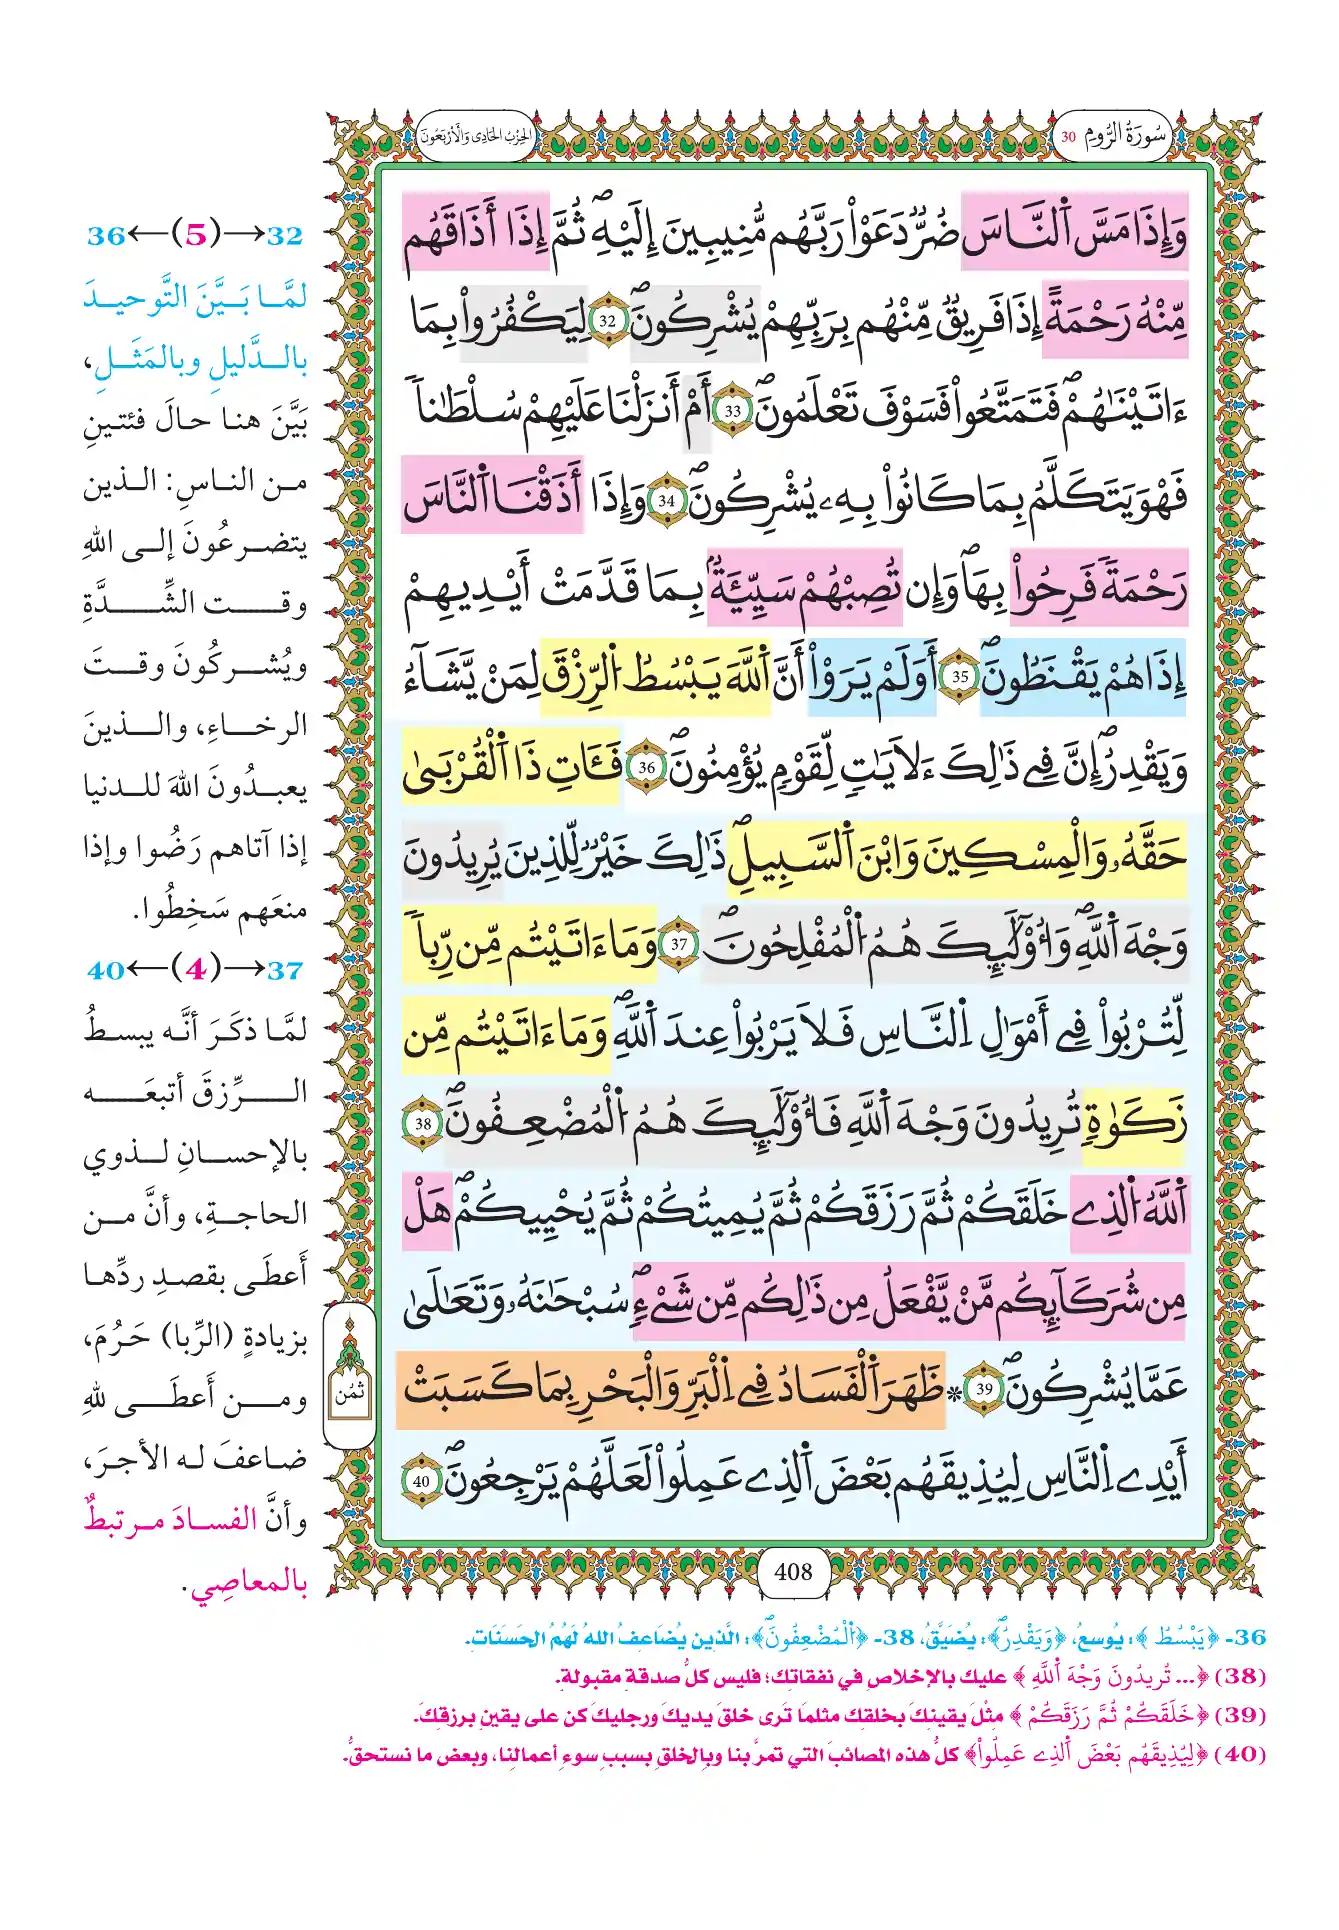 سُورَةُ الرُّومِ 30
الحِزْبُ الحَادِي وَالأَرْبَعُونَ
وَإِذَا مَسَّ اَ۬لنَّاسَ ضُرّٞ دَعَوْاْ رَبَّهُم مُّنِيبِينَ إِلَيْهِۖ ثُمَّ إِذَا أَذَاقَهُم
مِّنْهُ رَحْمَةً إِذَا فَرِيقٞ مِّنْهُم بِرَبِّهِمْ يُشْرِكُونَۖ 32 لِيَكْفُرُواْ بِمَا
ءَاتَيْنَٰهُمْۖ فَتَمَتَّعُواْ فَسَوْفَ تَعْلَمُونَۖ 33 أَمْ أَنزَلْنَا عَلَيْهِمْ سُلْطَٰناٗ
فَهْوَ يَتَكَلَّمُ بِمَا كَانُواْ بِهِۦ يُشْرِكُونَۖ 34 وَإِذَا أَذَقْنَا اَ۬لنَّاسَ
رَحْمَةٗ فَرِحُواْ بِهَاۖ وَإِن تُصِبْهُمْ سَيِّئَةُۢ بِمَا قَدَّمَتْ أَيْدِيهِمْ
إِذَا هُمْ يَقْنَطُونَۖ 35 أَوَلَمْ يَرَوْاْ أَنَّ اَ۬للَّهَ يَبْسُطُ اُ۬لرِّزْقَ لِمَنْ يَّشَآءُ
وَيَقْدِرُۖ إِنَّ فِے ذَٰلِكَ ءَلَايَٰتٖ لِّقَوْمٖ يُؤْمِنُونَۖ 36 فَـَٔاتِ ذَا اَ۬لْقُرْبَىٰ
حَقَّهُۥ وَالْمِسْكِينَ وَابْنَ اَ۬لسَّبِيلِۖ ذَٰلِكَ خَيْرٞ لِّلذِينَ يُرِيدُونَ
وَجْهَ اَ۬للَّهِۖ وَأُوْلَٰٓئِكَ هُمُ اُ۬لْمُفْلِحُونَۖ 37 وَمَا ءَاتَيْتُم مِّن رِّباٗ
لِّتُرْبُواْ فِے أَمْوَٰلِ اِ۬لنَّاسِ فَلَا يَرْبُواْ عِندَ اَ۬للَّهِۖ وَمَا ءَاتَيْتُم مِّن
زَكَوٰةٖ تُرِيدُونَ وَجْهَ اَ۬للَّهِ فَأُوْلَٰٓئِكَ هُمُ اُ۬لْمُضْعِفُونَۖ 38
اَ۬للَّهُ اُ۬لذِے خَلَقَكُمْ ثُمَّ رَزَقَكُمْ ثُمَّ يُمِيتُكُمْ ثُمَّ يُحْيِيكُمْۖ هَلْ
مِن شُرَكَآئِكُم مَّنْ يَّفْعَلُ مِن ذَٰلِكُم مِّن شَےْءٖۖ سُبْحَٰنَهُۥ وَتَعَٰلَىٰ
عَمَّا يُشْرِكُونَۖ 39 * ظَهَرَ اَ۬لْفَسَادُ فِے اِ۬لْبَرِّ وَالْبَحْرِ بِمَا كَسَبَتْ
أَيْدِے اِ۬لنَّاسِ لِيُذِيقَهُم بَعْضَ اَ۬لذِے عَمِلُواْ لَعَلَّهُمْ يَرْجِعُونَۖ 40
ثُمُن
408
32→(5)←36
لمَّا بَيَّنَ التَّوحيدَ
بالدَّليلِ وبالمَثَلِ،
بَيَّنَ هنا حالَ فئتينِ
من الناسِ: الذين
يتضرعُونَ إلى اللهِ
وقت الشِّدَّةِ
ويُشركُونَ وقتَ
الرخاءِ، والذينَ
يعبدُونَ اللهَ للدنيا
إذا آتاهم رَضُوا وإذا
منعَهم سَخِطُوا.
37→(4)←40
لمَّا ذكَرَ أنَّه يبسطُ
الرِّزقَ أتبعَه
بالإحسانِ لذوي
الحاجةِ، وأنَّ من
أَعطَى بقصدِ ردِّها
بزيادةٍ (الرِّبا) حَرُمَ،
ومن أَعطَى للهِ
ضاعفَ له الأجرَ،
وأنَّ الفسادَ مرتبطٌ
بالمعاصِي.
36- ﴿يَبْسُطُ﴾: يُوسعُ، ﴿وَيَقْدِرُۖ﴾: يُضَيِّقُ، 38- ﴿اُ۬لْمُضْعِفُونَۖ﴾: الَّذِينَ يُضَاعِفُ اللهُ لَهُمُ الحَسَنَاتِ.
(38) ﴿... تُرِيدُونَ وَجْهَ اَ۬للَّهِ﴾ عليك بالإخلاصِ في نفقاتِك؛ فليس كلُّ صدقةٍ مقبولةً.
(39) ﴿خَلَقَكُمْ ثُمَّ رَزَقَكُمْ﴾ مثْلَ يقينِكَ بخلقِك مثلمَا تَرى خلقَ يديكَ ورجليكَ كن على يقينٍ برزقِكَ.
(40) ﴿لِيُذِيقَهُم بَعْضَ اَ۬لذِے عَمِلُواْ﴾ كلُّ هذه المصائبَ التي تمرُّ بنا وبالخلقِ بسببِ سوءِ أعمالِنا، وبعض ما نستحقُّ.